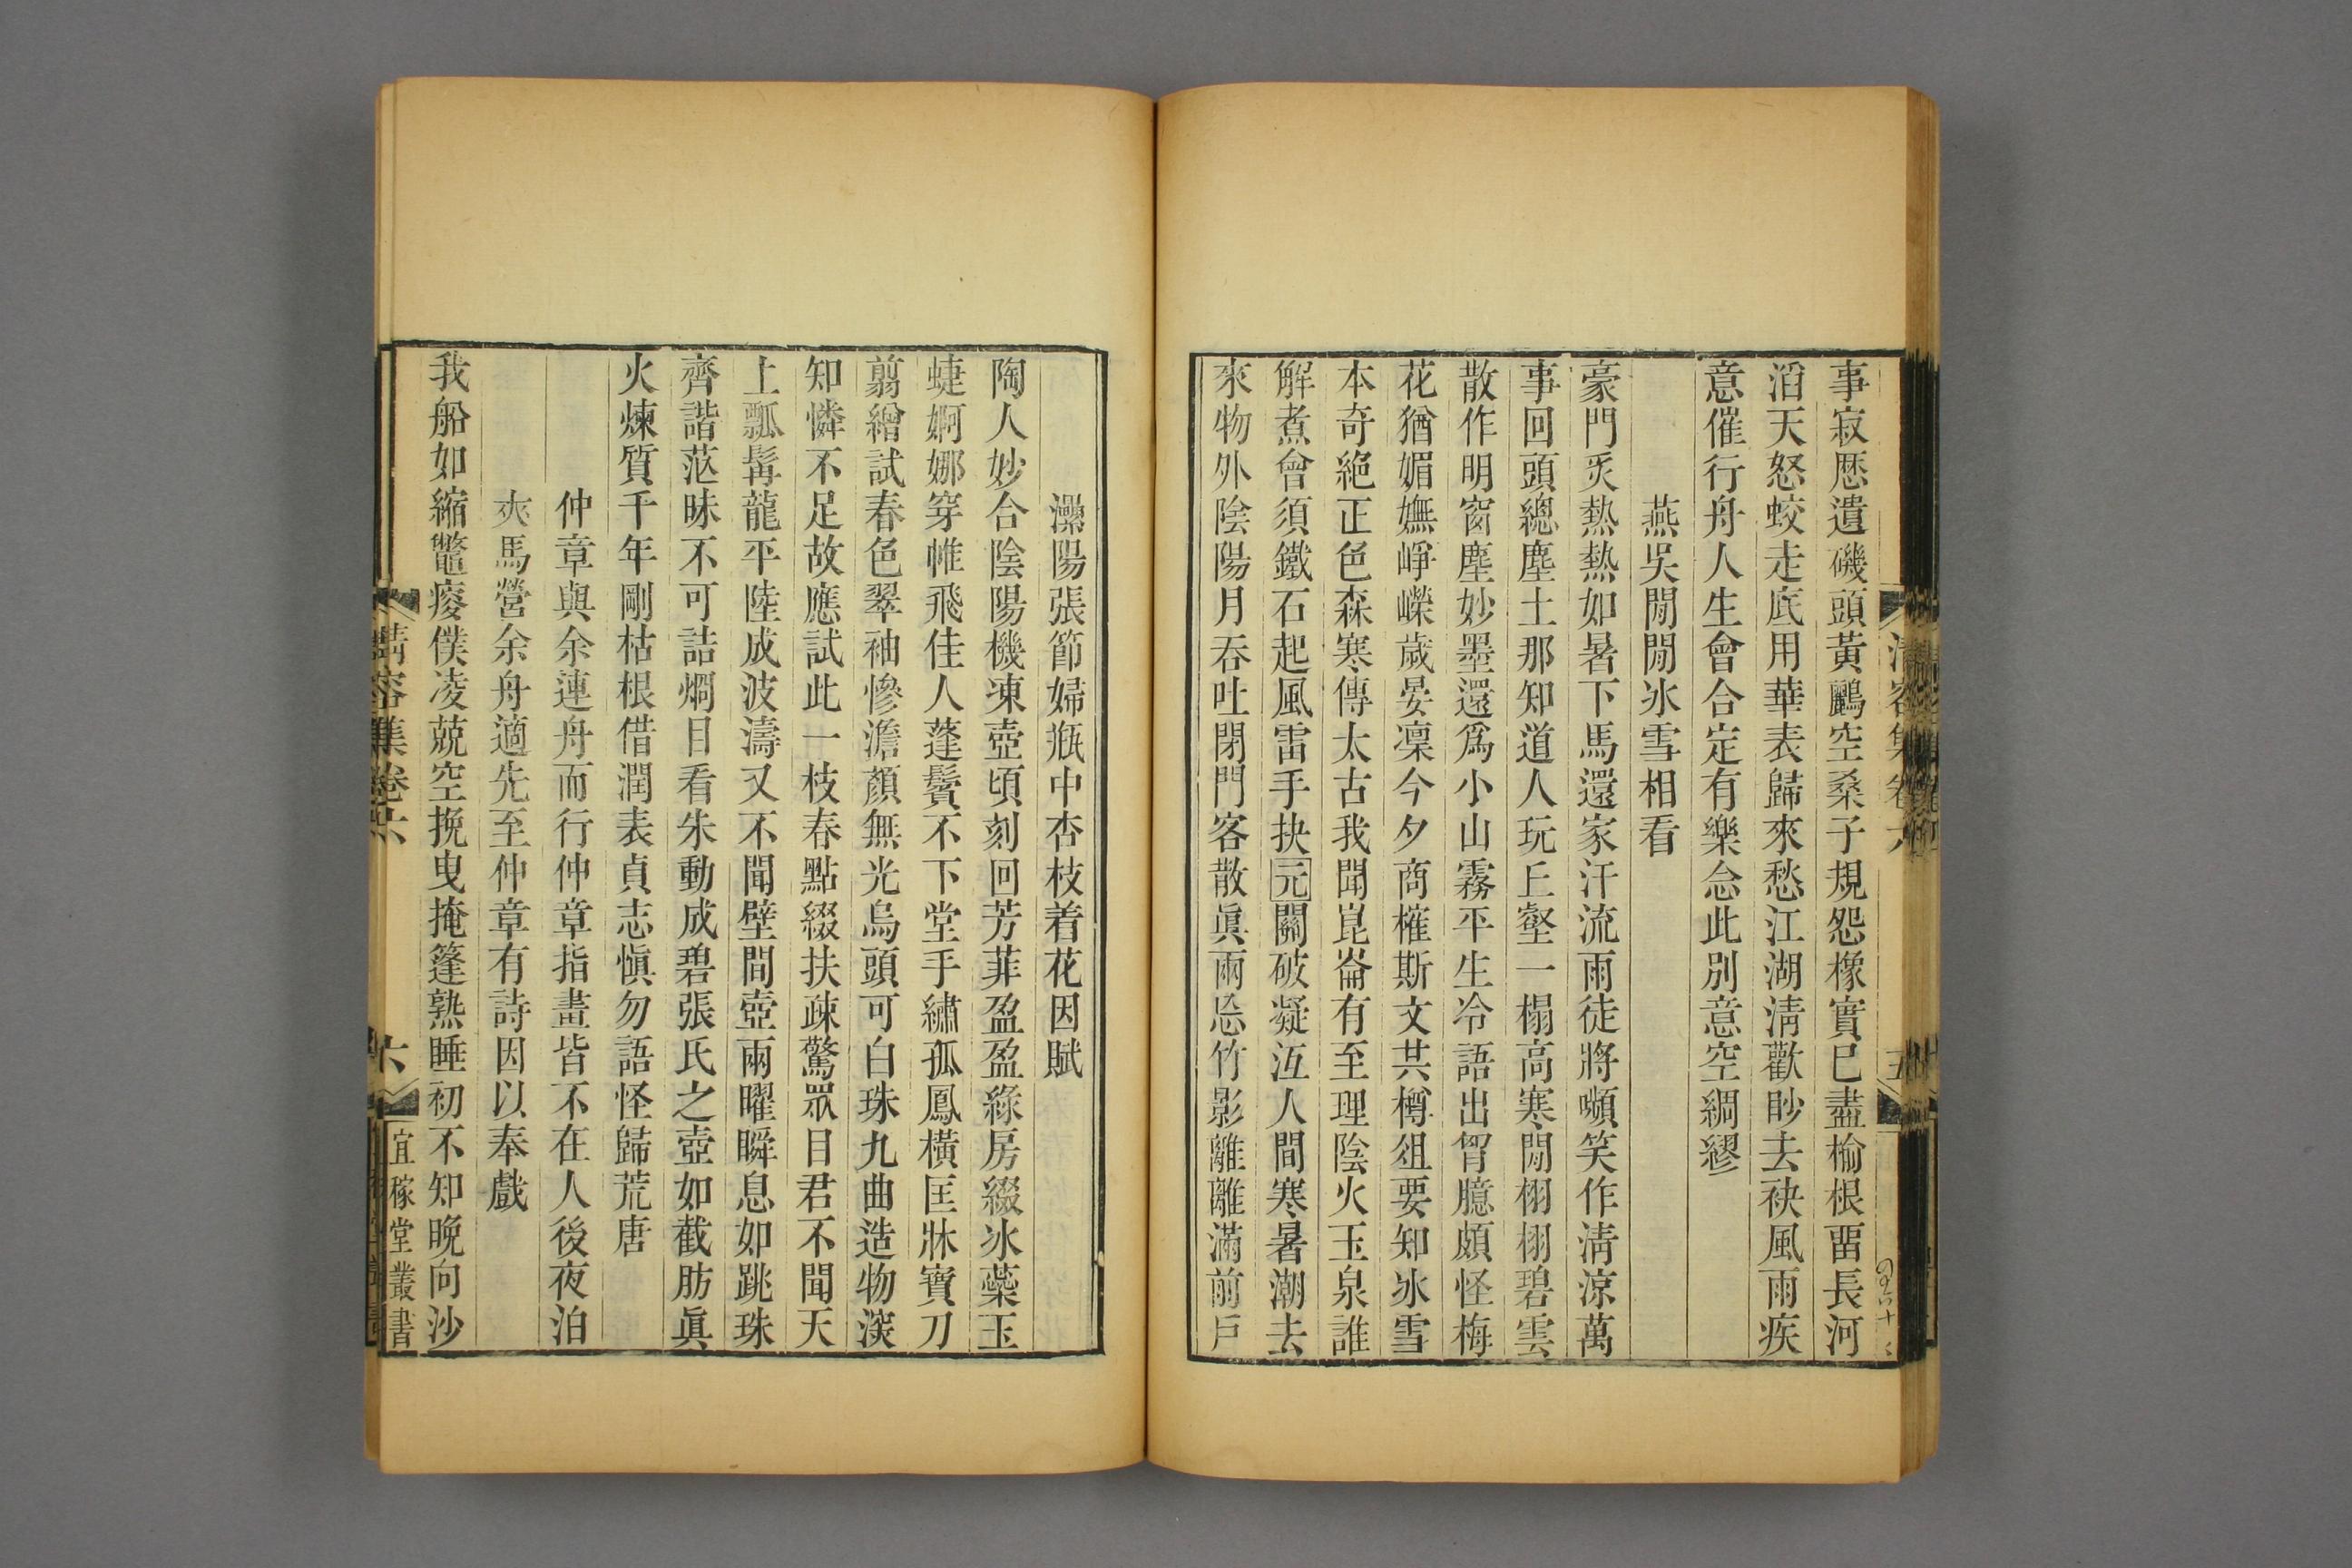 事寂厯遺磯頭黃鸝空桑子規怨橡實巳盡榆根畱長河
滔天怒蛟走底用華表歸來愁江湖淸歡眇去袂風雨疾
意催行舟人生會合定有樂念此別意空綢繆
燕吳閒閒冰雪相看
豪門炙熱熱如暑下馬還家汗流雨徒將嚬笑作淸涼萬
事回頭總塵土那知道人玩丘壑一榻高寒閒栩栩碧雲
散作明窗塵妙墨還爲小山霧平生冷語出胷臆頗怪梅
花猶媚嫵崢嶸歲晏凜今夕商榷斯文共樽俎要知冰雪
本奇絕正色森寒傳太古我聞崑崙有至理陰火玉泉誰
解煮會須鐵石起風雷手抉元關破凝沍人間寒暑潮去
來物外陰陽月吞吐閉門客散眞兩忘竹影離離滿前戶
清容集卷六
五
灤陽張節婦瓶中杏枝着花因賦
陶人妙合陰陽機凍壺頃刻回芳菲盈盈綠房綴冰蘂玉
婕婀娜穿帷飛佳人蓬鬢不下堂手繡孤鳳橫匡牀寶刀
翦繒試春色翠袖慘澹顏無光烏頭可白珠九曲造物深
知憐不足故應試此一枝春點綴扶疎驚眾目君不聞天
上瓢髯龍平陸成波濤又不聞壁間壺兩曜瞬息如跳珠
齊諧茫昧不可詰烱目看朱動成碧張氏之壺如截肪眞
火煉質千年剛枯根借潤表貞志愼勿語怪歸荒唐
仲章與余連舟而行仲章指畫皆不在人後夜泊
夾馬營余舟適先至仲章有詩因以奉戲
我船如縮鼈痠僕凌兢空挽曳掩篷熟睡初不知晚向沙
清容集卷六
六
宜稼堂叢書